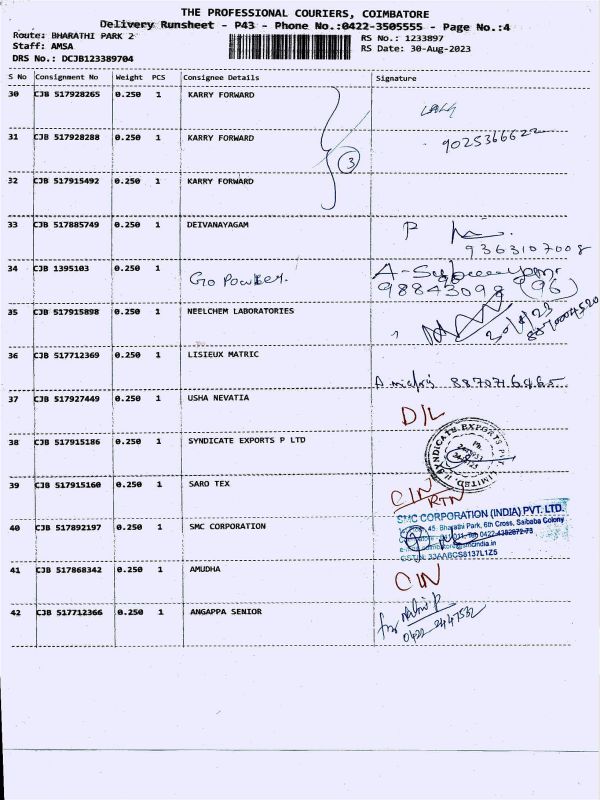 THE PROFESSIONAL COURIERS, COIMBATORE
Delivery Runsheet - P43 - Phone No.:0422-3505555 - Page No.:4
Route: BHARATHI PARK 2 RS No.: 1233897
Staff: AMSA RS Date: 30-Aug-2023
DRS No.: DCJB123389704
S No Consignment No Weight PCS Consignee Details Signature
30 CJB 517928265 0.250 1 KARRY FORWARD
31 CJB 517928288 0.250 1 KARRY FORWARD 9025366622
3
32 CJB 517915492 0.250 1 KARRY FORWARD
33 CJB 517885749 0.250 1 DEIVANAYAGAM P
9363107008
34 CJB 1395103 0.250 1 Go Powder.
98843098 (96)
35 CJB 517915898 0.250 1 NEELCHEM LABORATORIES
36 CJB 517712369 0.250 1 LISIEUX MATRIC
8870716465
37 CJB 517927449 0.250 1 USHA NEVATIA
D/L
38 CJB 517915186 0.250 1 SYNDICATE EXPORTS P LTD SYNDICATE EXPORTS PVT. LIMITED
39 CJB 517915160 0.250 1 SARO TEX CIN
RTN
40 CJB 517892197 0.250 1 SMC CORPORATION SMC CORPORATION (INDIA) PVT. LTD.
45 Bharathi Park, 6th Cross, Saibaba Colony
41 CJB 517868342 0.250 1 AMUDHA CIN
42 CJB 517712366 0.250 1 ANGAPPA SENIOR for
0422 2447532